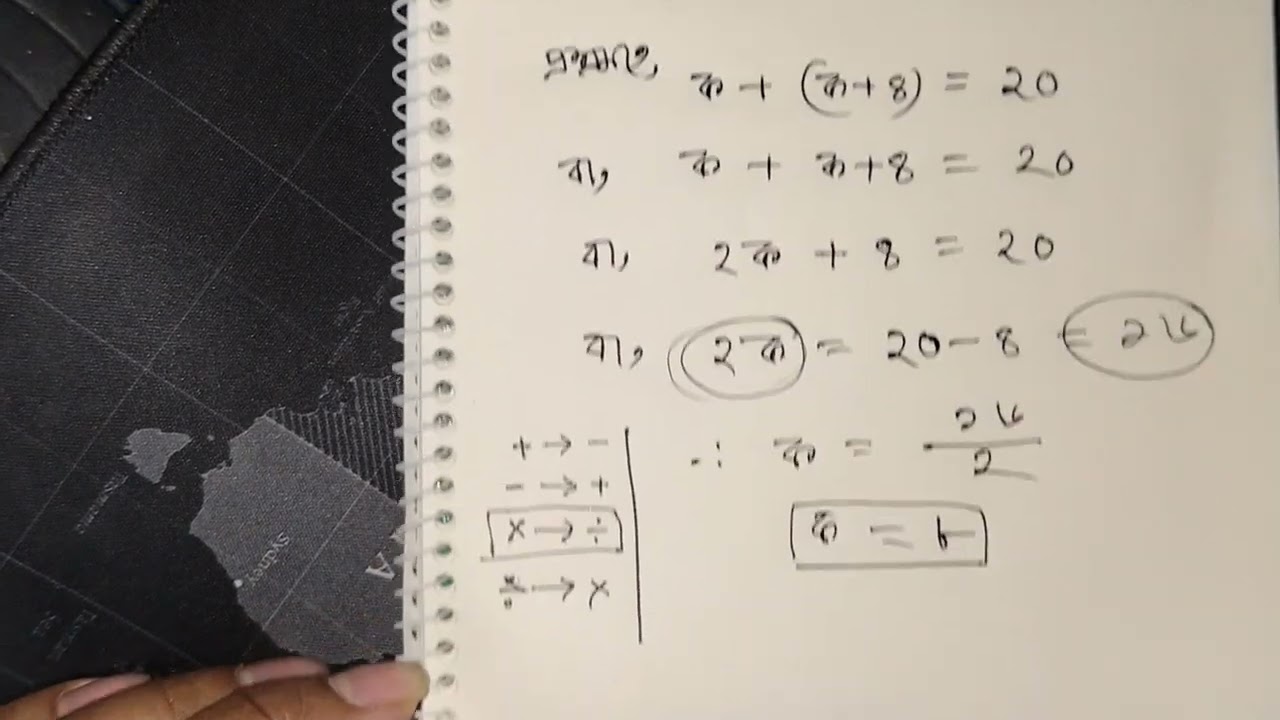 প্রশ্নমতে,
ক + (ক+৪) = ২০
বা, ক + ক+৪ = ২০
বা, ২ক + ৪ = ২০
বা, ২ক = ২০-৪ = ১৬
+ → -
- → +
× → ÷
÷ → ×
∴ ক = ১৬/২
ক = ৮
Sydney
A